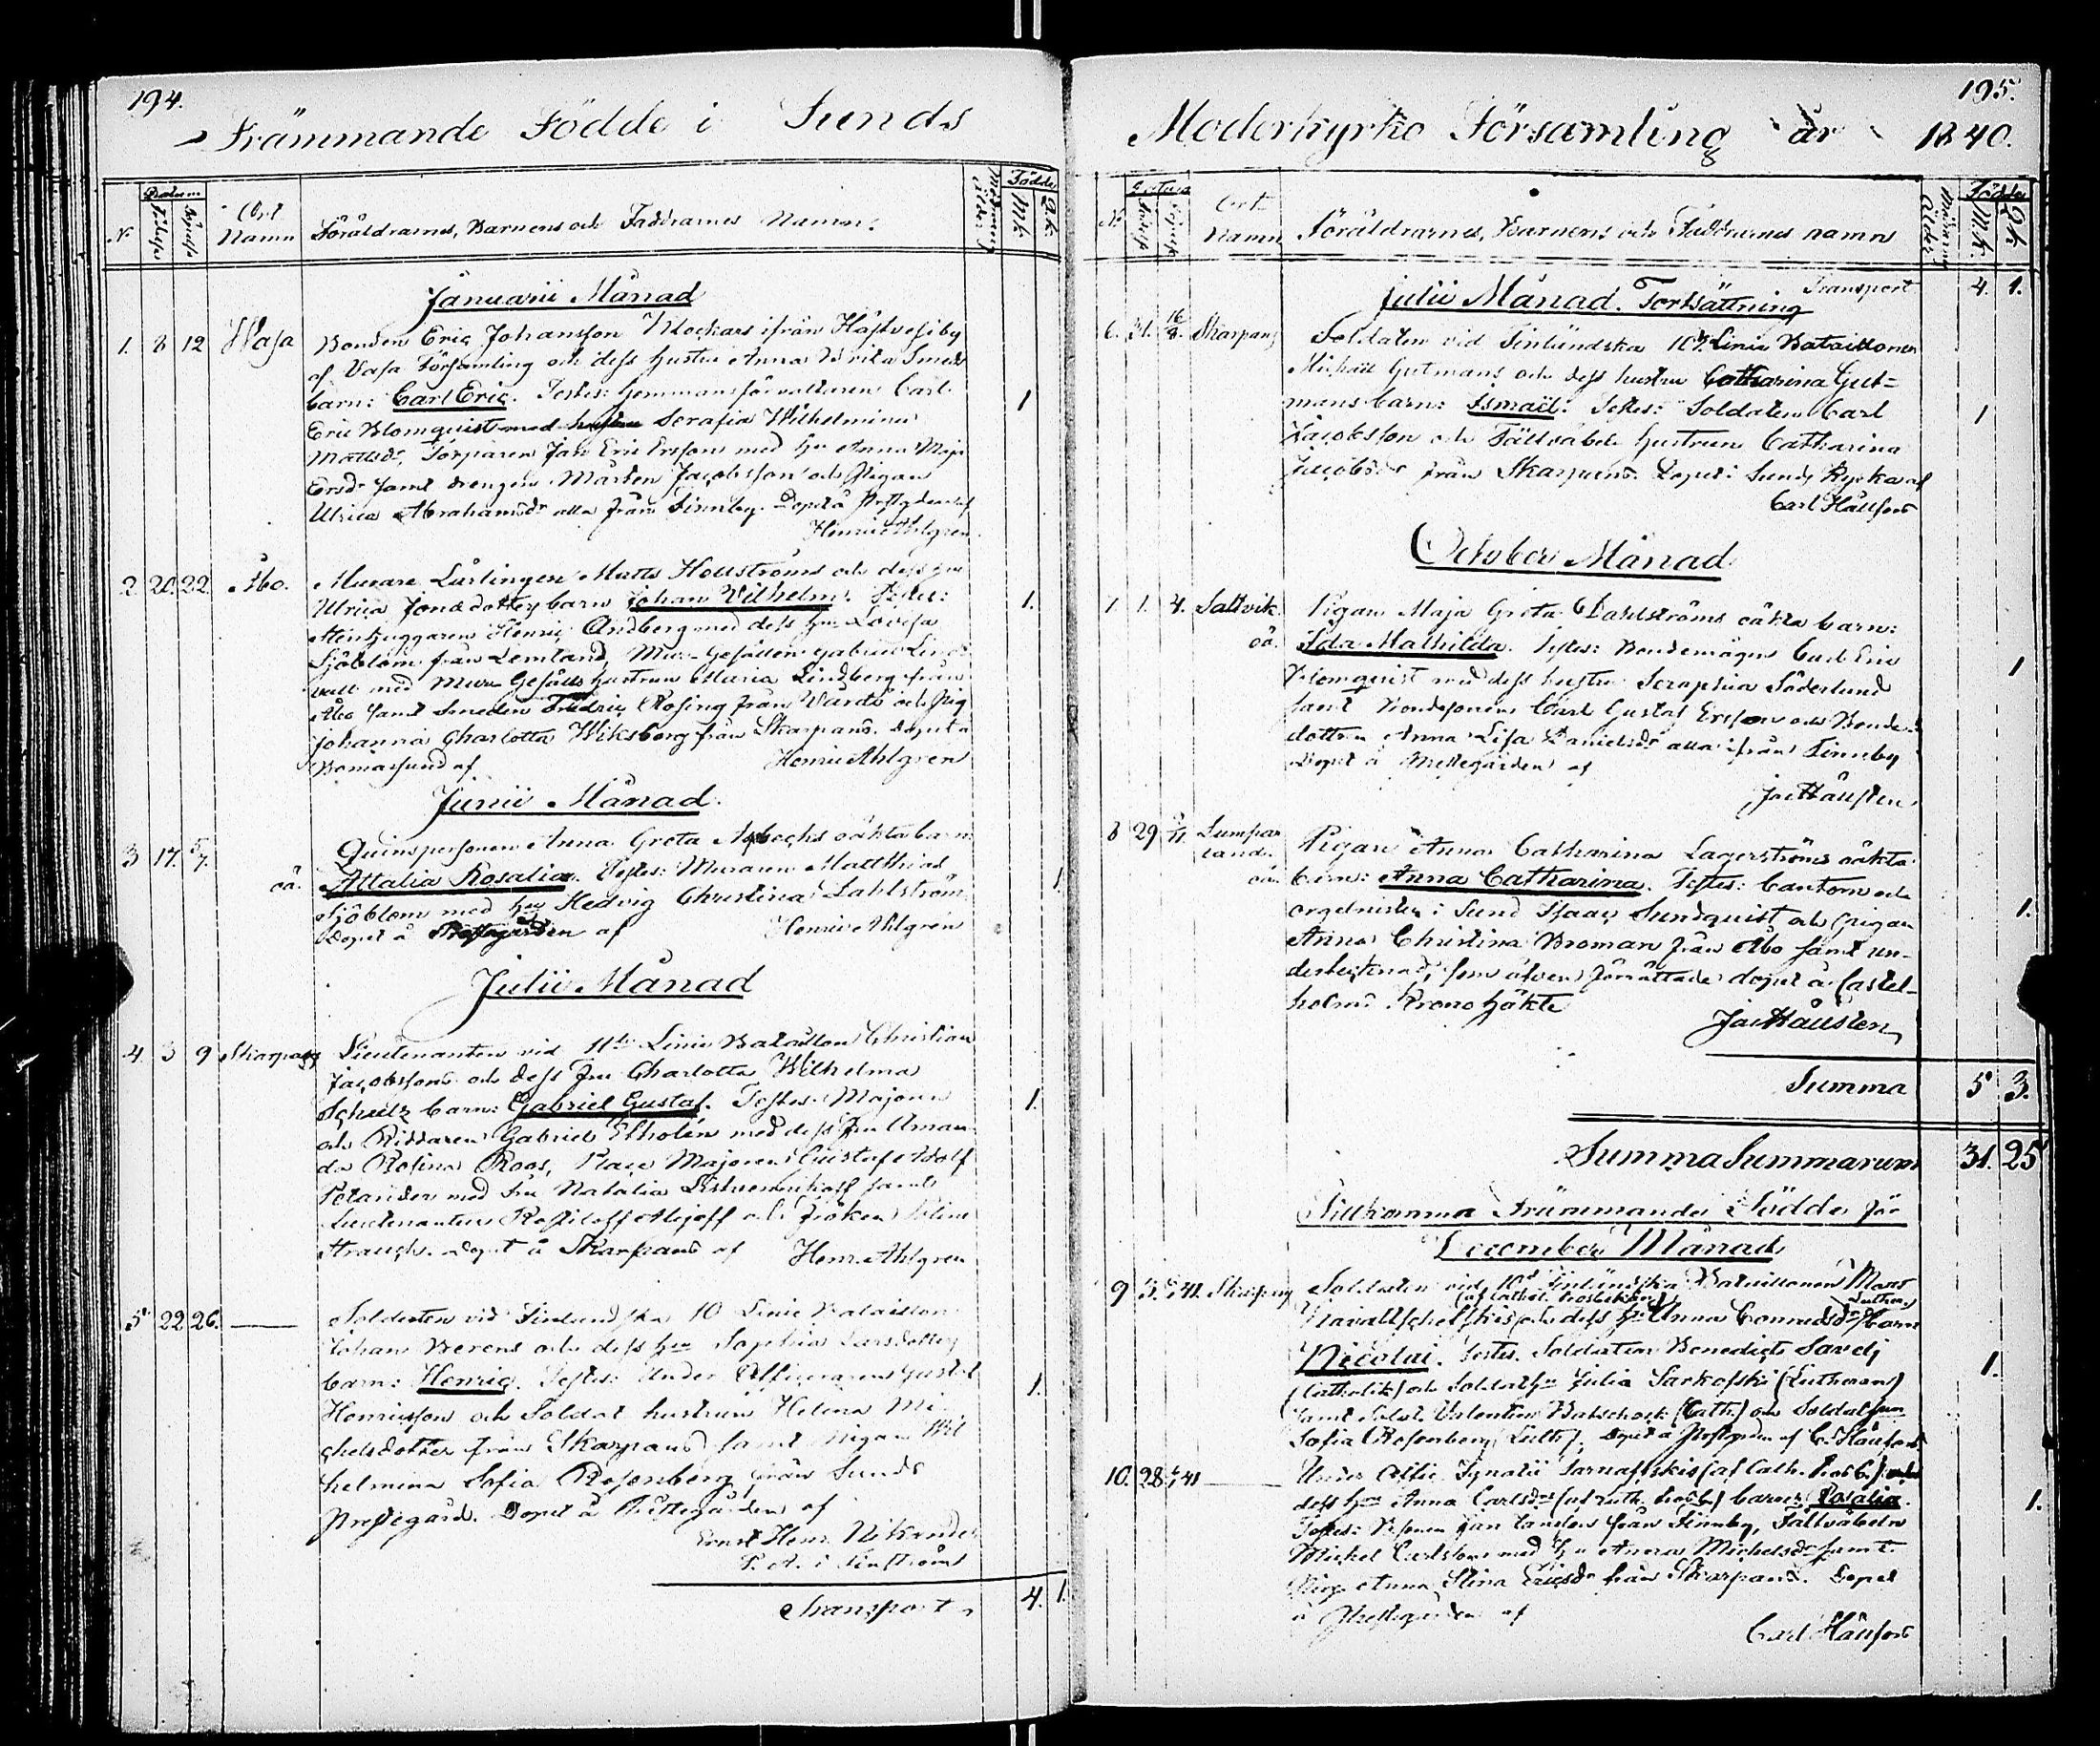 194.
Främmande Födde i Sunds
Datum
Födde
N:o
Födelse
Döpelse
Ort
Namn
Föräldrarnes, Barnens och Faddrarnes Namn.
M.k.
Q.k.
Januarii Månad
1. 8 12 Wasa
Bonden Eric Johansson Klockars ifrån
af Vasa Församling och dess hustru Anna Brita
barn: Carl Eric. Testes: Hemmansförvaltaren Carl
1
Eric Blomquist med hustru Serafia Wilhelmina
Mattsdr, Torparen Jan Eric Ersson med hu Anna Maja
Ersdr samt drengen Mårten Jacobsson och Pigan
Ulrica Abrahamsdr alla från Finnby. Döpt å Prestgården af
Henric Ahlgren
2. 20. 22. Åbo.
Murare Lärlingen Matts Hollströms och dess hu
Ulrica Jonsdotters barn Johan Vilhelm. Testes:
1.
Stenhuggaren Henric Andberg med dess hu Lovisa
Sjöblom från Lemland, Mur-Gesällen Gabriel
med Mur Gesälls hustrun Maria Lindberg från
Åbo samt Smeden Fredric Rosing från Vårdö och Pig
Johanna Charlotta Wiksberg från Skarpans. Döpt å
Bomarsund af Henric Ahlgren
Junii Månad.
3 17. 5/7.
Quinspersonen Anna Greta oäkta barn
oä. Attalia Rosalia. Testes: Muraren Matthias
1.
Sjöblom med hu Hedvig Christina Dahlström
Döpt å Prestegården af Henric Ahlgren
Julii Månad
4. 3 9 Skarpans
Lieutenanten vid 11te Linie Bataillon Christian
Jacobssons och dess Fru Charlotta Wilhelma
Schultz barn: Gabriel Gustaf. Testes: Majoren
1.
och Riddaren Gabriel Etholén med dess Fru Aman-
da Rosina Roos, Place Majoren Gustaf Adolf
Petander med Fru Natalia samt
Lieutenanten och Fröken
Döpt å Skarpans af Henr. Ahlgren
5 22 26.
Soldaten vid Finlandska 10 Linie Bataillon
Johan Berens och dess hu Sophia Larsdotters
barn: Henric. Testes: Under Officeraren Gustaf
1.
Henricsson och Soldat hustrun Helena Mi-
chelsdotter från Skarpans samt Pigan Wil
helmina Sofia Rosenberg från Sunds
Prestegård. Döpt å Prestegården af
Ernst Henr. Nikander
P. A. i
Transport 4. 1.
195.
Moderkyrko Församling år 1840.
Datum
Födde
N:o
Födelse
Döpelse
Ort
Namn
Föräldrarnes, Barnens och Faddrarnes namn
Ålder
M.k.
Q.k.
Julii Månad. Fortsättning
Transport 4. 1.
6. 31. 16/8. Skarpans
Soldaten vid Finländska 10de Linie Bataillonen
Michaël Gutmans och dess hustru Catharina Gut=
mans barn: Ismaël: Testes: Soldaten Carl
1
Jacobsson och Fältväbels hustrun Catharina
Jacobsdr från Skarpans. Döpt i Sunds Kyrka af
Carl Häufors
October Månad
7. 1. 4. Saltvik
Pigan Maja Greta Dahlströms oäkta barn:
oä. Ida Mathilda. Testes: Bondemågen Carl Eric
1
Blomquist med dess hustru Seraphia Söderlund
samt Bondesonen Carl Gustaf Ersson och Bonde
dottren Anna Lisa Danielsdr alla ifrån Finnby
Döpt å Prestegården af
Jac Håusten
8 29 Lumpar
land.
Pigan Anna Catharina Lagerströms oäkta
oä. barn: Anna Catharina. Testes: Cantorn och
1.
orgelnisten i Sund Isaac Sundquist och Pigan
Anna Christina Broman från Åbo samt un-
dertecknad, som äfven förrättade dopet å Castel-
holms Kronohäkte
Jac Håusten
Summa 5 3.
Summa Summarum 31. 25
Tillkomma Främmande Födde för
December Månad
9 3. Skarpans
Soldaten vid 10de Finländska Bataillonen Matts
(af Cathol. bekän.) och dess hu Anna (Luther.) barn
Nicolai. Testes. Soldaten Benedict
1.
(Catholik) och Soldat hu Julia Sarkofski (Lutheran)
samt Soldat Valentin (Cath.) och Soldat hu
Sofia Rosenberg (Luth.) Döpt å Prestgården af C. Häufors
10. 28
Under Offic. Ignatii (af Cath. bek.) och
dess hu Anna Carlsdrs (af Luth. bek.) barn: Rosalia.
1.
Testes: från Finnby, Fältväbeln
Mickel Carlsson med hu Anna Michelsdr samt
Pig. Anna Stina Ericsdr från Skarpans. Döpt
å Prestegården af
Carl Häufors